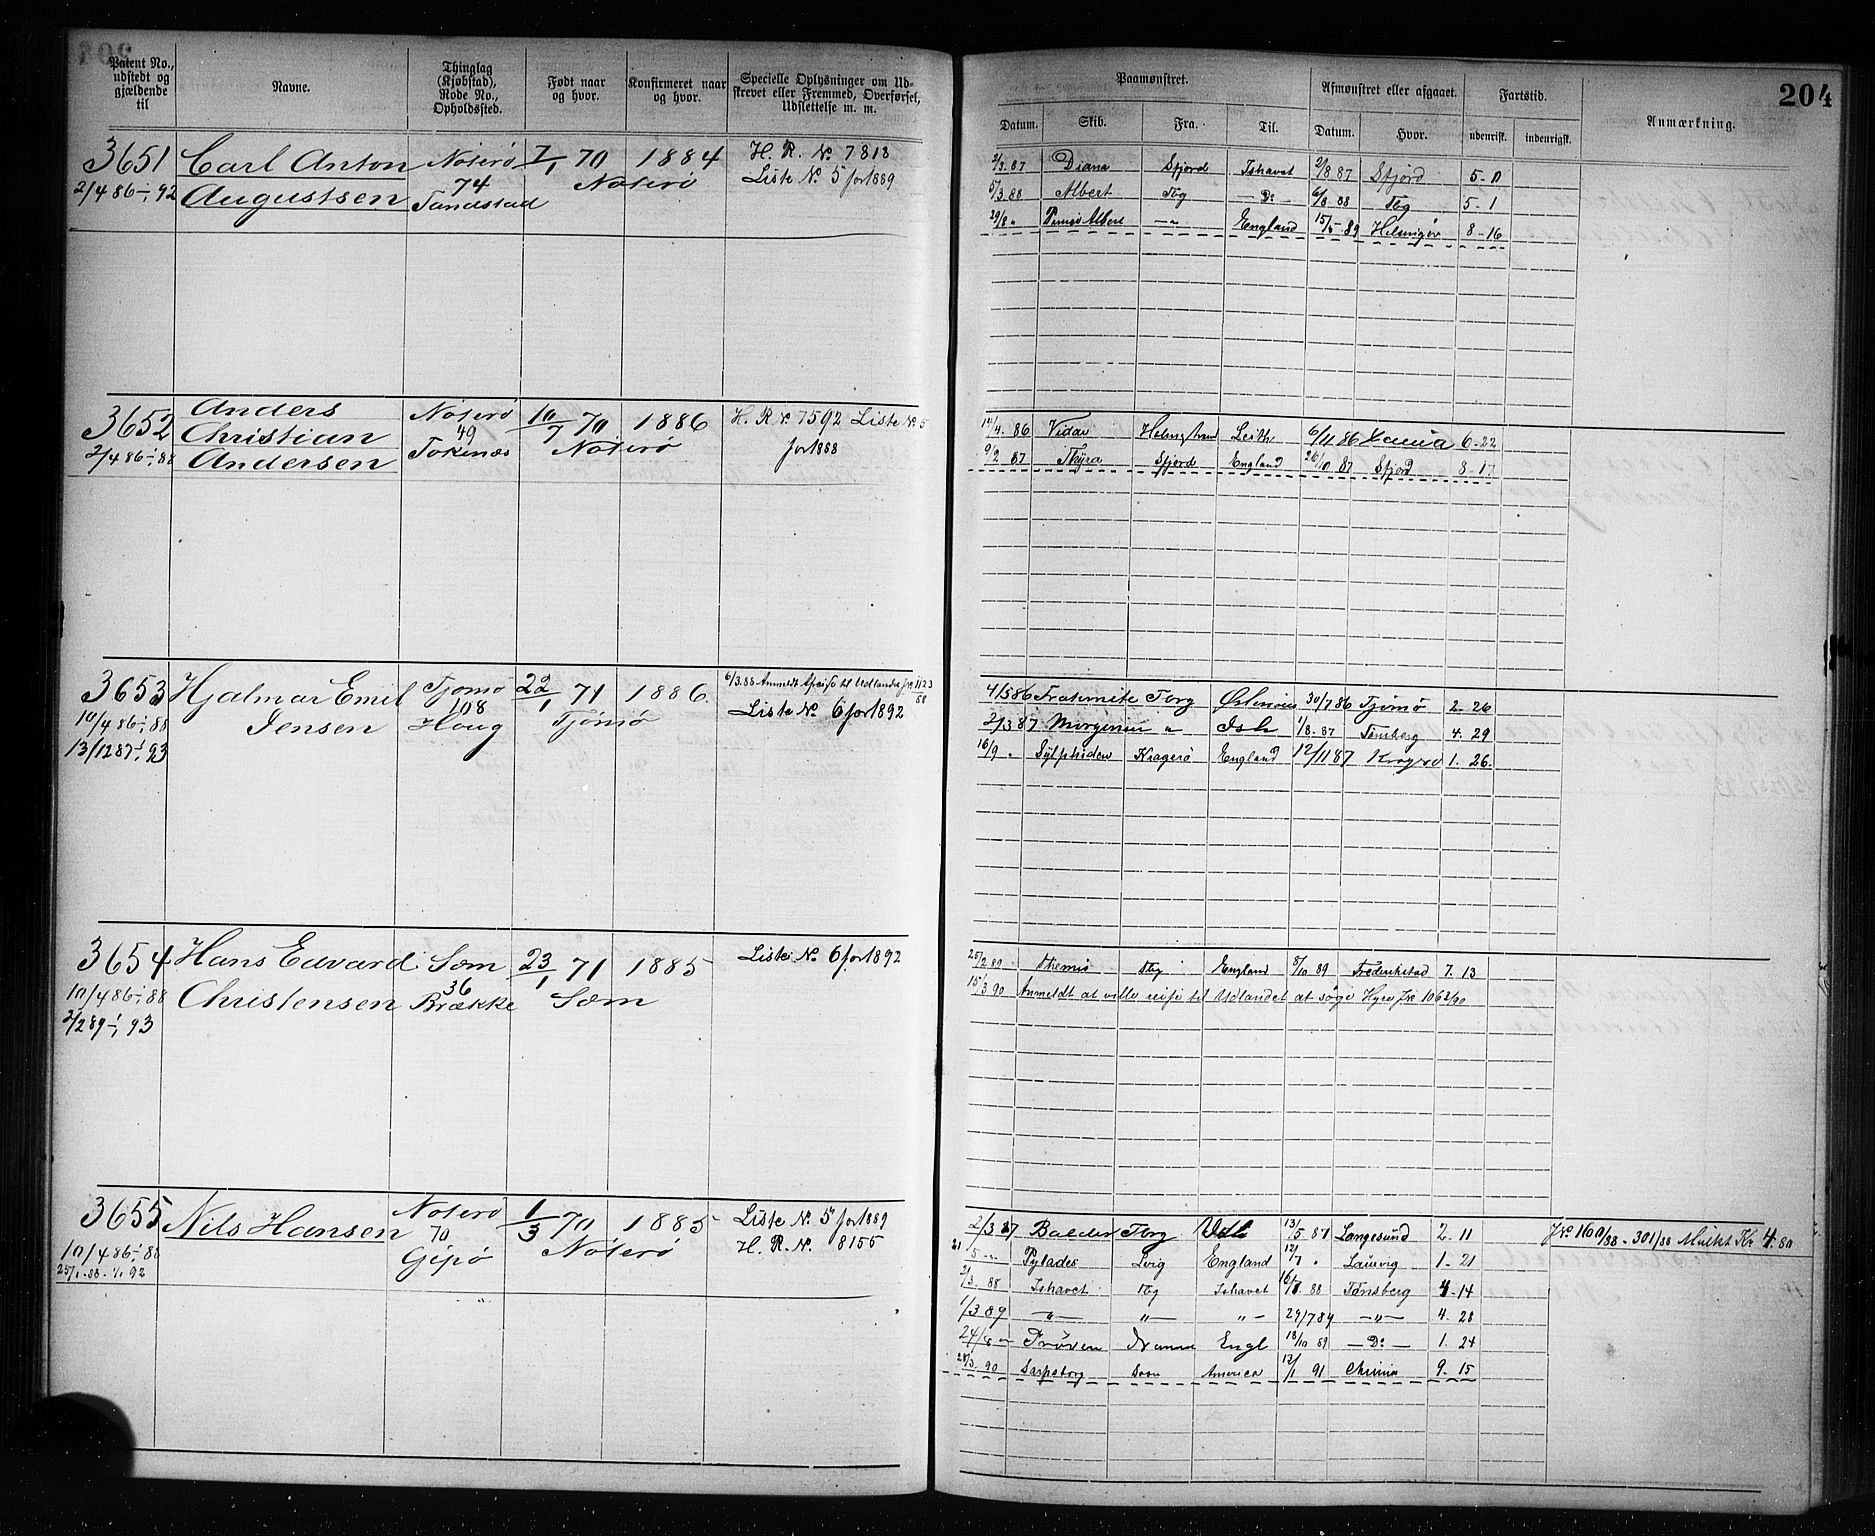 Patent No., udstedt og gjældende til
Navne.
Thinglag (Kjøbstad), Rode No., Opholdssted.
Født naar og hvor.
Konfirmeret naar og hvor.
Specielle Oplysninger om Udskrevet eller Fremmed, Overførsel, Udslettelse m. m.
3651 Carl Anton Nøterö 7/1 70 1884 H. R. No 7818
2/4 86-1/1 92 Augustsen 74 Nøterö Liste No 5 for 1889
3652 Anders Nøterö 10/7 70 1886 H. R. No 7592 Liste No 5
Christian 49 Nøterö for 1888
2/4 86-1/1 88 Andersen
3653 Hjalmar Emil Tjømø 22/1 71 1886.
10/4 86-1/1 88 Jensen 108 Haug Tjømø Liste No 6 for 1892
13/12 87-1/1 93
3654 Hans Edvard Sæm 23/1 71 1885 Liste No 6 for 1892
10/4 86-1/1 88 Christensen 36 Brække Sæm
2/2 89-1/1 93
3655 Nils Hansen Nøterö 1/3 70 1885 Liste No 5 for 1889
10/4 86-1/1 88 70 Gipø Nøterö H. R. No 8155
25/1 88-1/1 92
204
Paamønstret.
Afmønstret eller afgaaet.
Fartstid.
Anmærkning.
Datum. Skib. Fra. Til. Datum. Hvor. udenrikst. indenrigst.
2/3 87 Diana Sfjord Ishavet 2/8 87 Sfjord 5-0
5/3 88 Albert Tbg —Do— 6/8 88 Tbg 5-1
29/8 " Albert —"— England 15/5 89 Helsingør 8-16
14/4 86 Vidar Holmstrand Leith 6/11 86 6-22
9/2 87 Thyra Sfjord England 26/10 87 Sfjord 8-17
4/5 86 Torg 30/7 86 Tjømø 2 26
2/3 87 Ish 1/8 87 Tønsberg 4. 29
16/9 " Sylphiden Kragerö England 12/11 87 Kragerö 1. 26.
25/2 89 Themis Tbg England 8/10 89 Frederikstad 7. 13
15/3 90 Anmeldt at ville reise til Udlandet at søge Hyre Jno 1062/90
2/3 87 Balder Torg 13/5 87 Langesund 2. 11 Jno 160/88 - 301/88 Mulkt Kr 4.80
21/5 " Pylades Lvig England 12/7 " Laurvig 1- 21
2/3 88 Ishavet Tbg Ishavet 16/7 88 Tønsberg 4-14
1/3 89 —"— "— "— 29/7 89 —"— 4. 28
24/8 — Prøven Engl 18/10 89 —Do— 1. 24
28/3 90 Sarpsborg America 13/1 91 9. 15